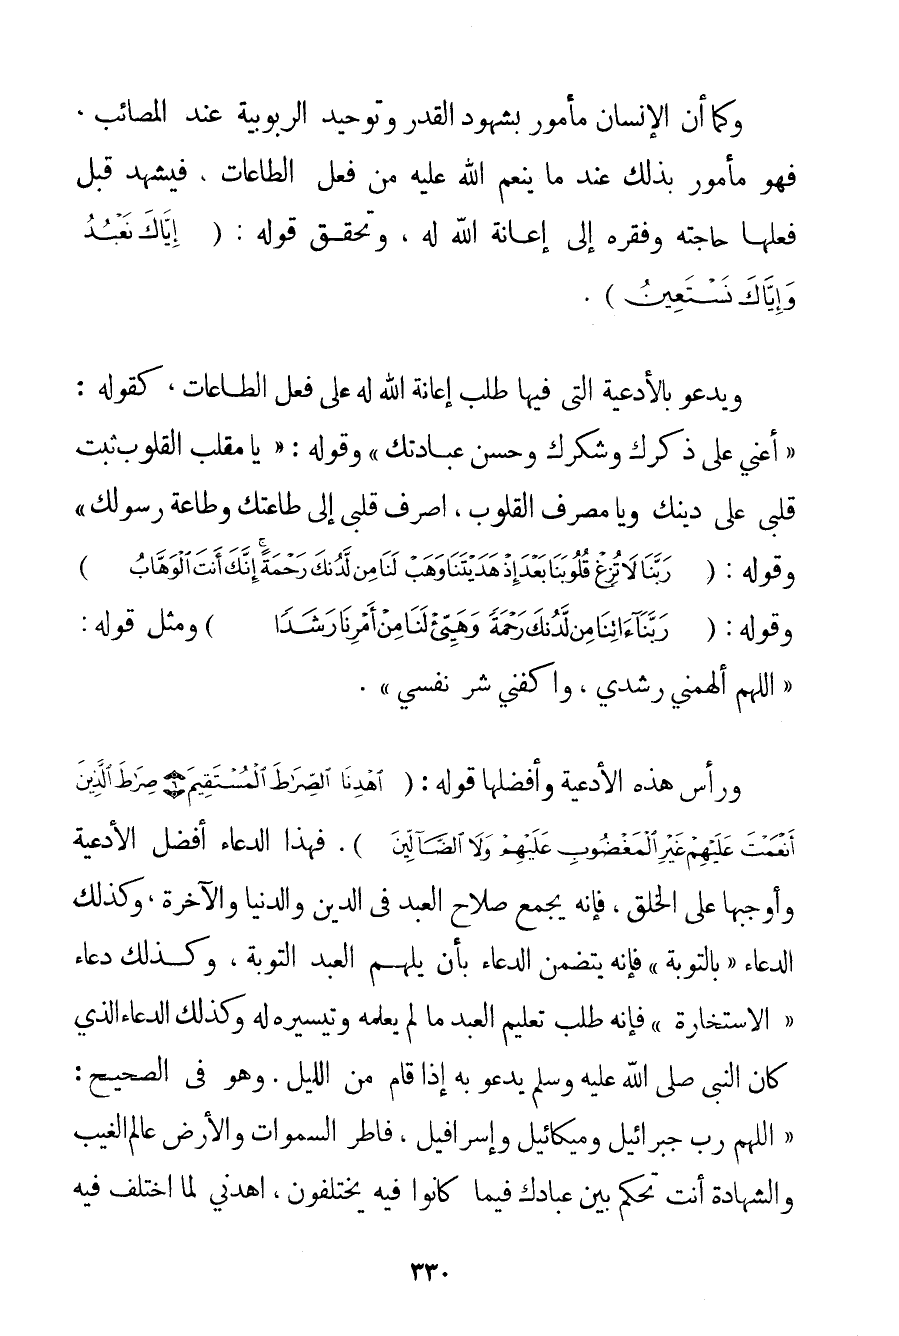 وكما أن الإنسان مأمور بشهود القدر وتوحيد الربوبية عند المصائب .
فهو مأمور بذلك عند ما ينعم الله عليه من فعل الطاعات ، فيشهد قبل
فعلها حاجته وفقره إلى إعانة الله له ، وتحقق قوله : ( إِيَّاكَ نَعْبُدُ
وَإِيَّاكَ نَسْتَعِينُ ) .
ويدعو بالأدعية التى فيها طلب إعانة الله له على فعل الطاعات ، كقوله :
« أعني على ذكرك وشكرك وحسن عبادتك » وقوله : « يا مقلب القلوب ثبت
قلبى على دينك ويا مصرف القلوب ، اصرف قلبى إلى طاعتك وطاعة رسولك »
وقوله : ( رَبَّنَا لَا تُزِغْ قُلُوبَنَا بَعْدَ إِذْ هَدَيْتَنَا وَهَبْ لَنَا مِن لَّدُنكَ رَحْمَةً ۚ إِنَّكَ أَنتَ ٱلْوَهَّابُ )
وقوله : ( رَبَّنَآ ءَاتِنَا مِن لَّدُنكَ رَحْمَةً وَهَيِّئْ لَنَا مِنْ أَمْرِنَا رَشَدًا ) ومثل قوله :
« اللهم ألهمني رشدي ، واكفني شر نفسي » .
ورأس هذه الأدعية وأفضلها قوله : ( ٱهْدِنَا ٱلصِّرَٰطَ ٱلْمُسْتَقِيمَ ٦ صِرَٰطَ ٱلَّذِينَ
أَنْعَمْتَ عَلَيْهِمْ غَيْرِ ٱلْمَغْضُوبِ عَلَيْهِمْ وَلَا ٱلضَّآلِّينَ ) . فهذا الدعاء أفضل الأدعية
وأوجبها على الخلق ، فإنه يجمع صلاح العبد فى الدين والدنيا والآخرة ، وكذلك
الدعاء « بالتوبة » فإنه يتضمن الدعاء بأن يلهم العبد التوبة ، وكذلك دعاء
« الاستخارة » فإنه طلب تعليم العبد ما لم يعلمه وتيسيره له وكذلك الدعاء الذي
كان النبى صلى الله عليه وسلم يدعو به إذا قام من الليل . وهو فى الصحيح :
« اللهم رب جبرائيل وميكائيل وإسرافيل ، فاطر السموات والأرض عالم الغيب
والشهادة أنت تحكم بين عبادك فيما كانوا فيه يختلفون ، اهدني لما اختلف فيه
٣٣٠